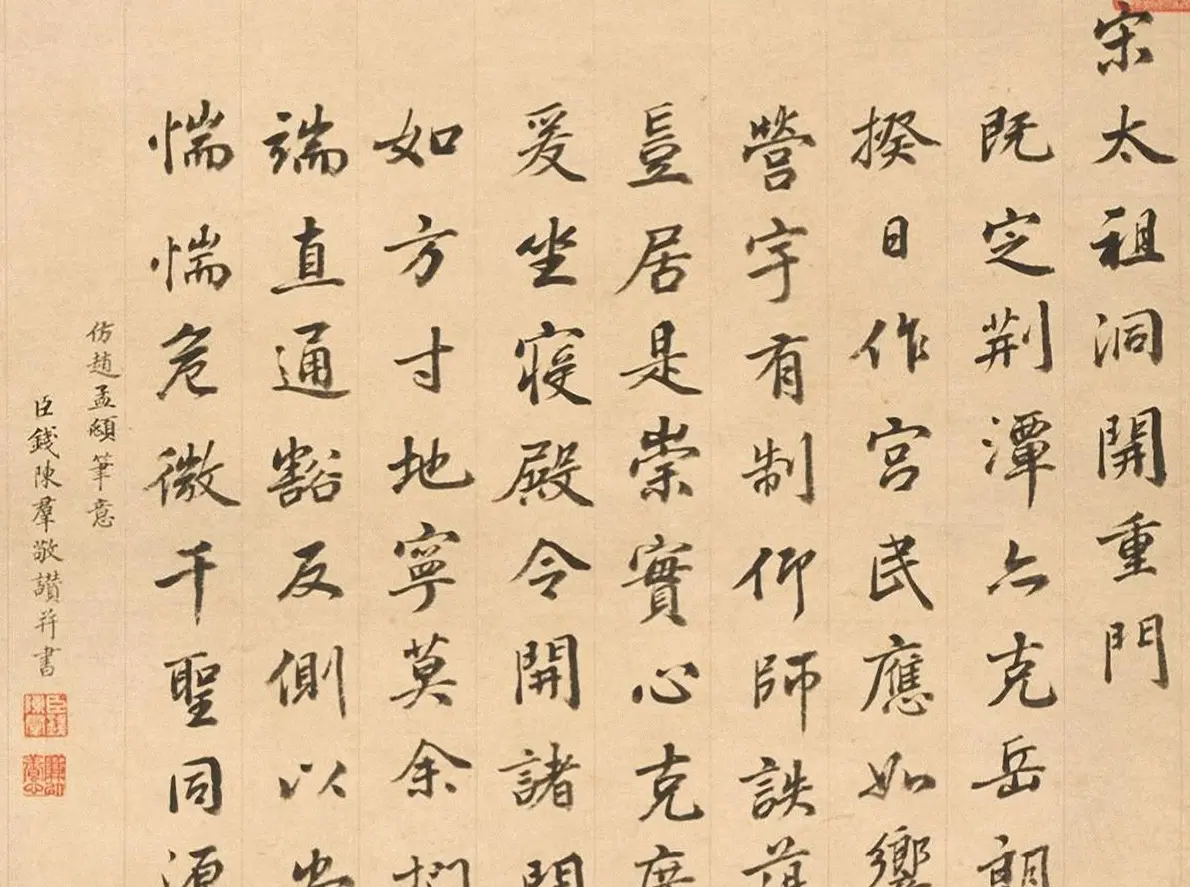 宋太祖洞開重門
既定荆潭亦克岳朗
揆日作宮民應如響
營宇有制仰師
豈居是崇實心克
爰坐寝殿令開諸門
如方寸地寧莫余
端直通豁反側以
惴惴危微千聖同源
仿趙孟頫筆意
臣錢陳羣敬讚并書